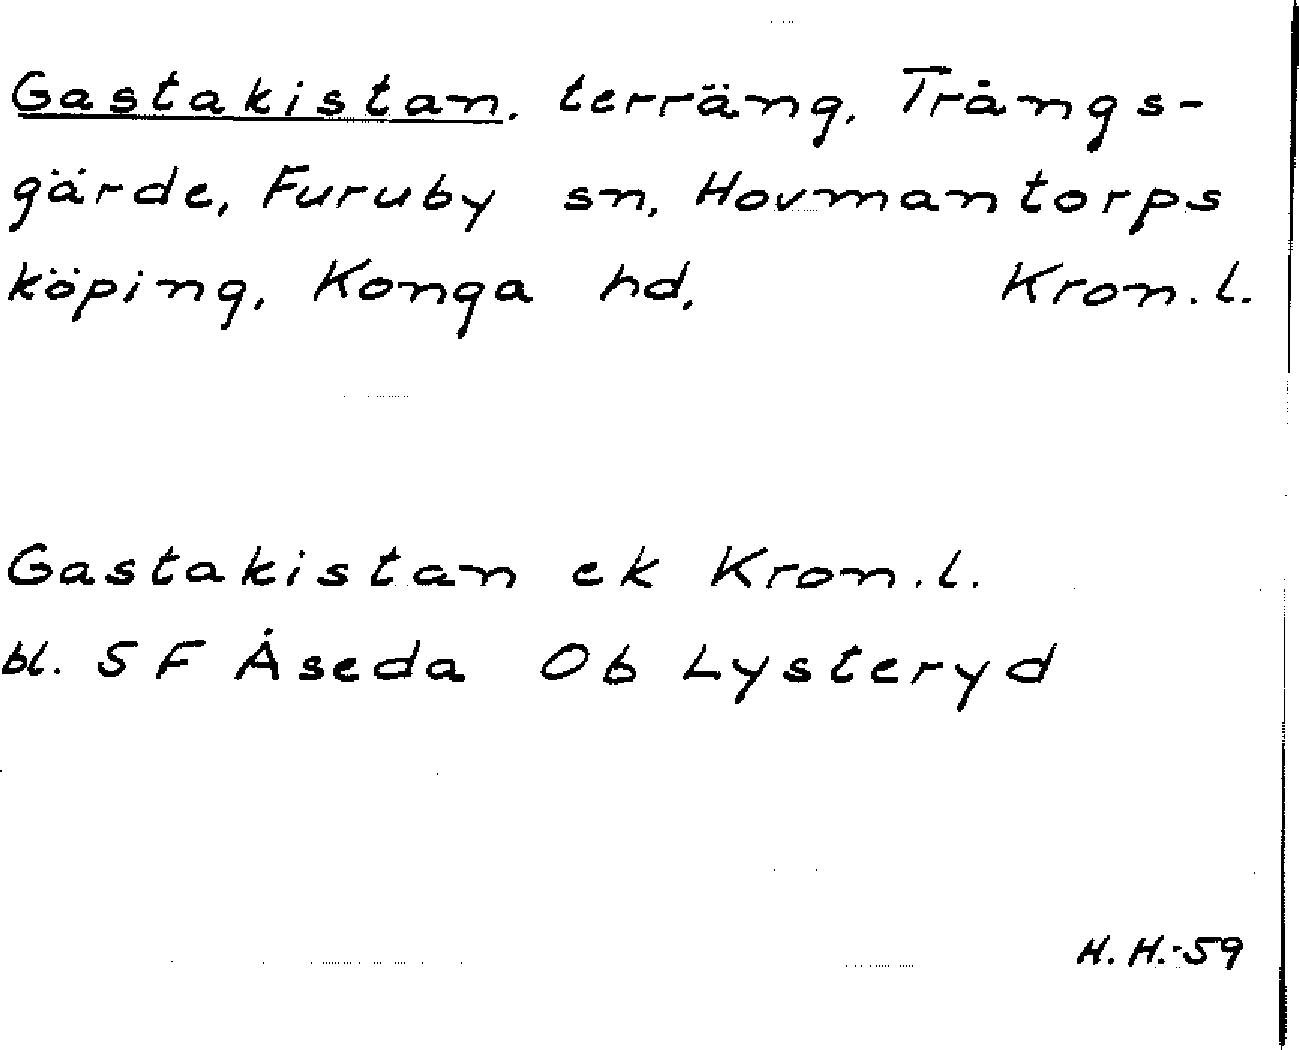 Gastakistan, terräng, Trångs-
gärde, Furuby sn, Hovmantorps
köping, Konga hd, Kron.l.
Gastakistan ek Kron.l.
bl. 5 F Åseda Ob Lysteryd
H.H.-59